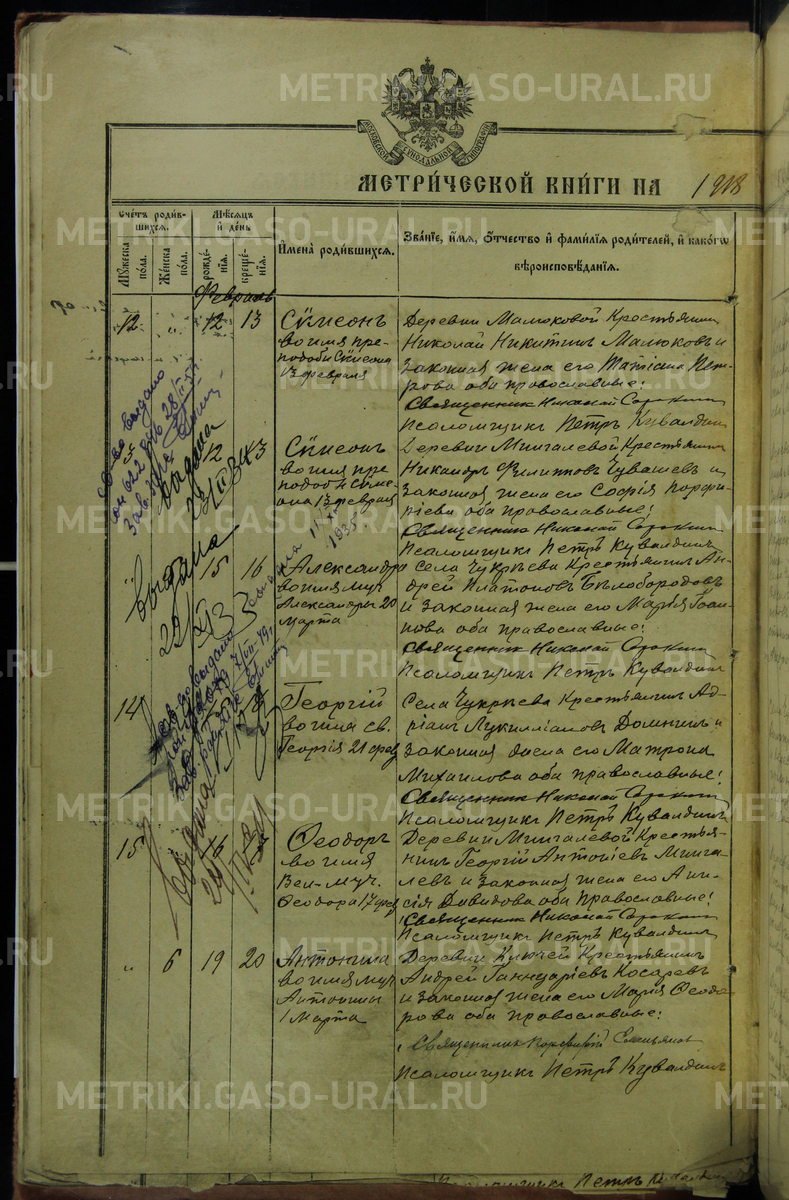 МОСКОВСКОЙ СѴНОДАЛЬНОЙ ТИПОГРАФІИ
МЕТРИ́ЧЕСКОЙ КНИ́ГИ НА 1918
Счетъ роди́вшихся.
Мѣсяцъ и де́нь
Имена̀ роди́вшихся.
Зва́ніе, и́мя, о́тчество и фами́лія роди́телей, и како́гѡ вѣроисповѣ́данія.
Му́жеска по́ла.
Же́нска по́ла.
рожде́нія.
креще́нія.
Февраль
12 " 12 13
Сѵмеонъ
во имя пре-
подобн Сѵмеона
13 февраля
Деревни Малюковой Крестьянин
Николай Никитинъ Малюковъ и
Законная жена его Татіана Пет-
рова оба православные!
Священник Николай Сорокин
Псаломщикъ Петръ Кувалдинъ
5 12 13
Сѵмеонъ
во имя пре
подобн Симе-
она 13 февраля
Деревни Мингалевой Крестьянин
Никандръ Филиповъ Чувашевъ и
Законная жена его Софія Порфи-
ріева оба православные!
Священник Николай Сорокин
Псаломщикъ Петръ Кувалдинъ
" 15 16
Александра
во имя муч
Александры 20
Марта
Села Чукрѣева Крестьянинъ Ан-
дрей Платоновъ Бѣлобородовъ
и Законная жена его Марія Іоан-
нова оба православные!
Священник Николай Сорокин
Псаломщикъ Петръ Кувалдинъ
14
Георгій
во имя св.
Георгія 21 фев
Села Чукрѣева Крестьянинъ Ад-
ріанъ Лукилліановъ Доминин и
Законная жена его Матрона
Михаилова оба православные!
Священник Николай Сорокин
Псаломщикъ Петръ Кувалдинъ
15 16
Феодоръ
во имя
Вел-муч.
Феодора 17 фев
Деревни Мингалевой Крестья-
нинъ Георгій Антоніевъ Минга-
левъ и Законная жена его Ани-
сія Давидова оба Православные!
Священник Николай Сорокин
Псаломщикъ Петръ Кувалдинъ
" 6 19 20
Антонина
во имя муч
Антонины
1 Марта
Деревни Ключей Крестьянинъ
Андрей Косаревъ
и законная жена его Марія Феодо-
рова оба православные!
Священник
Псаломщикъ Петръ Кувалдинъ
Псаломщикъ Петръ Кувалдинъ
выдано
выдана
Выдана
Выдана
1935
METRIKI.GASO-URAL.RU